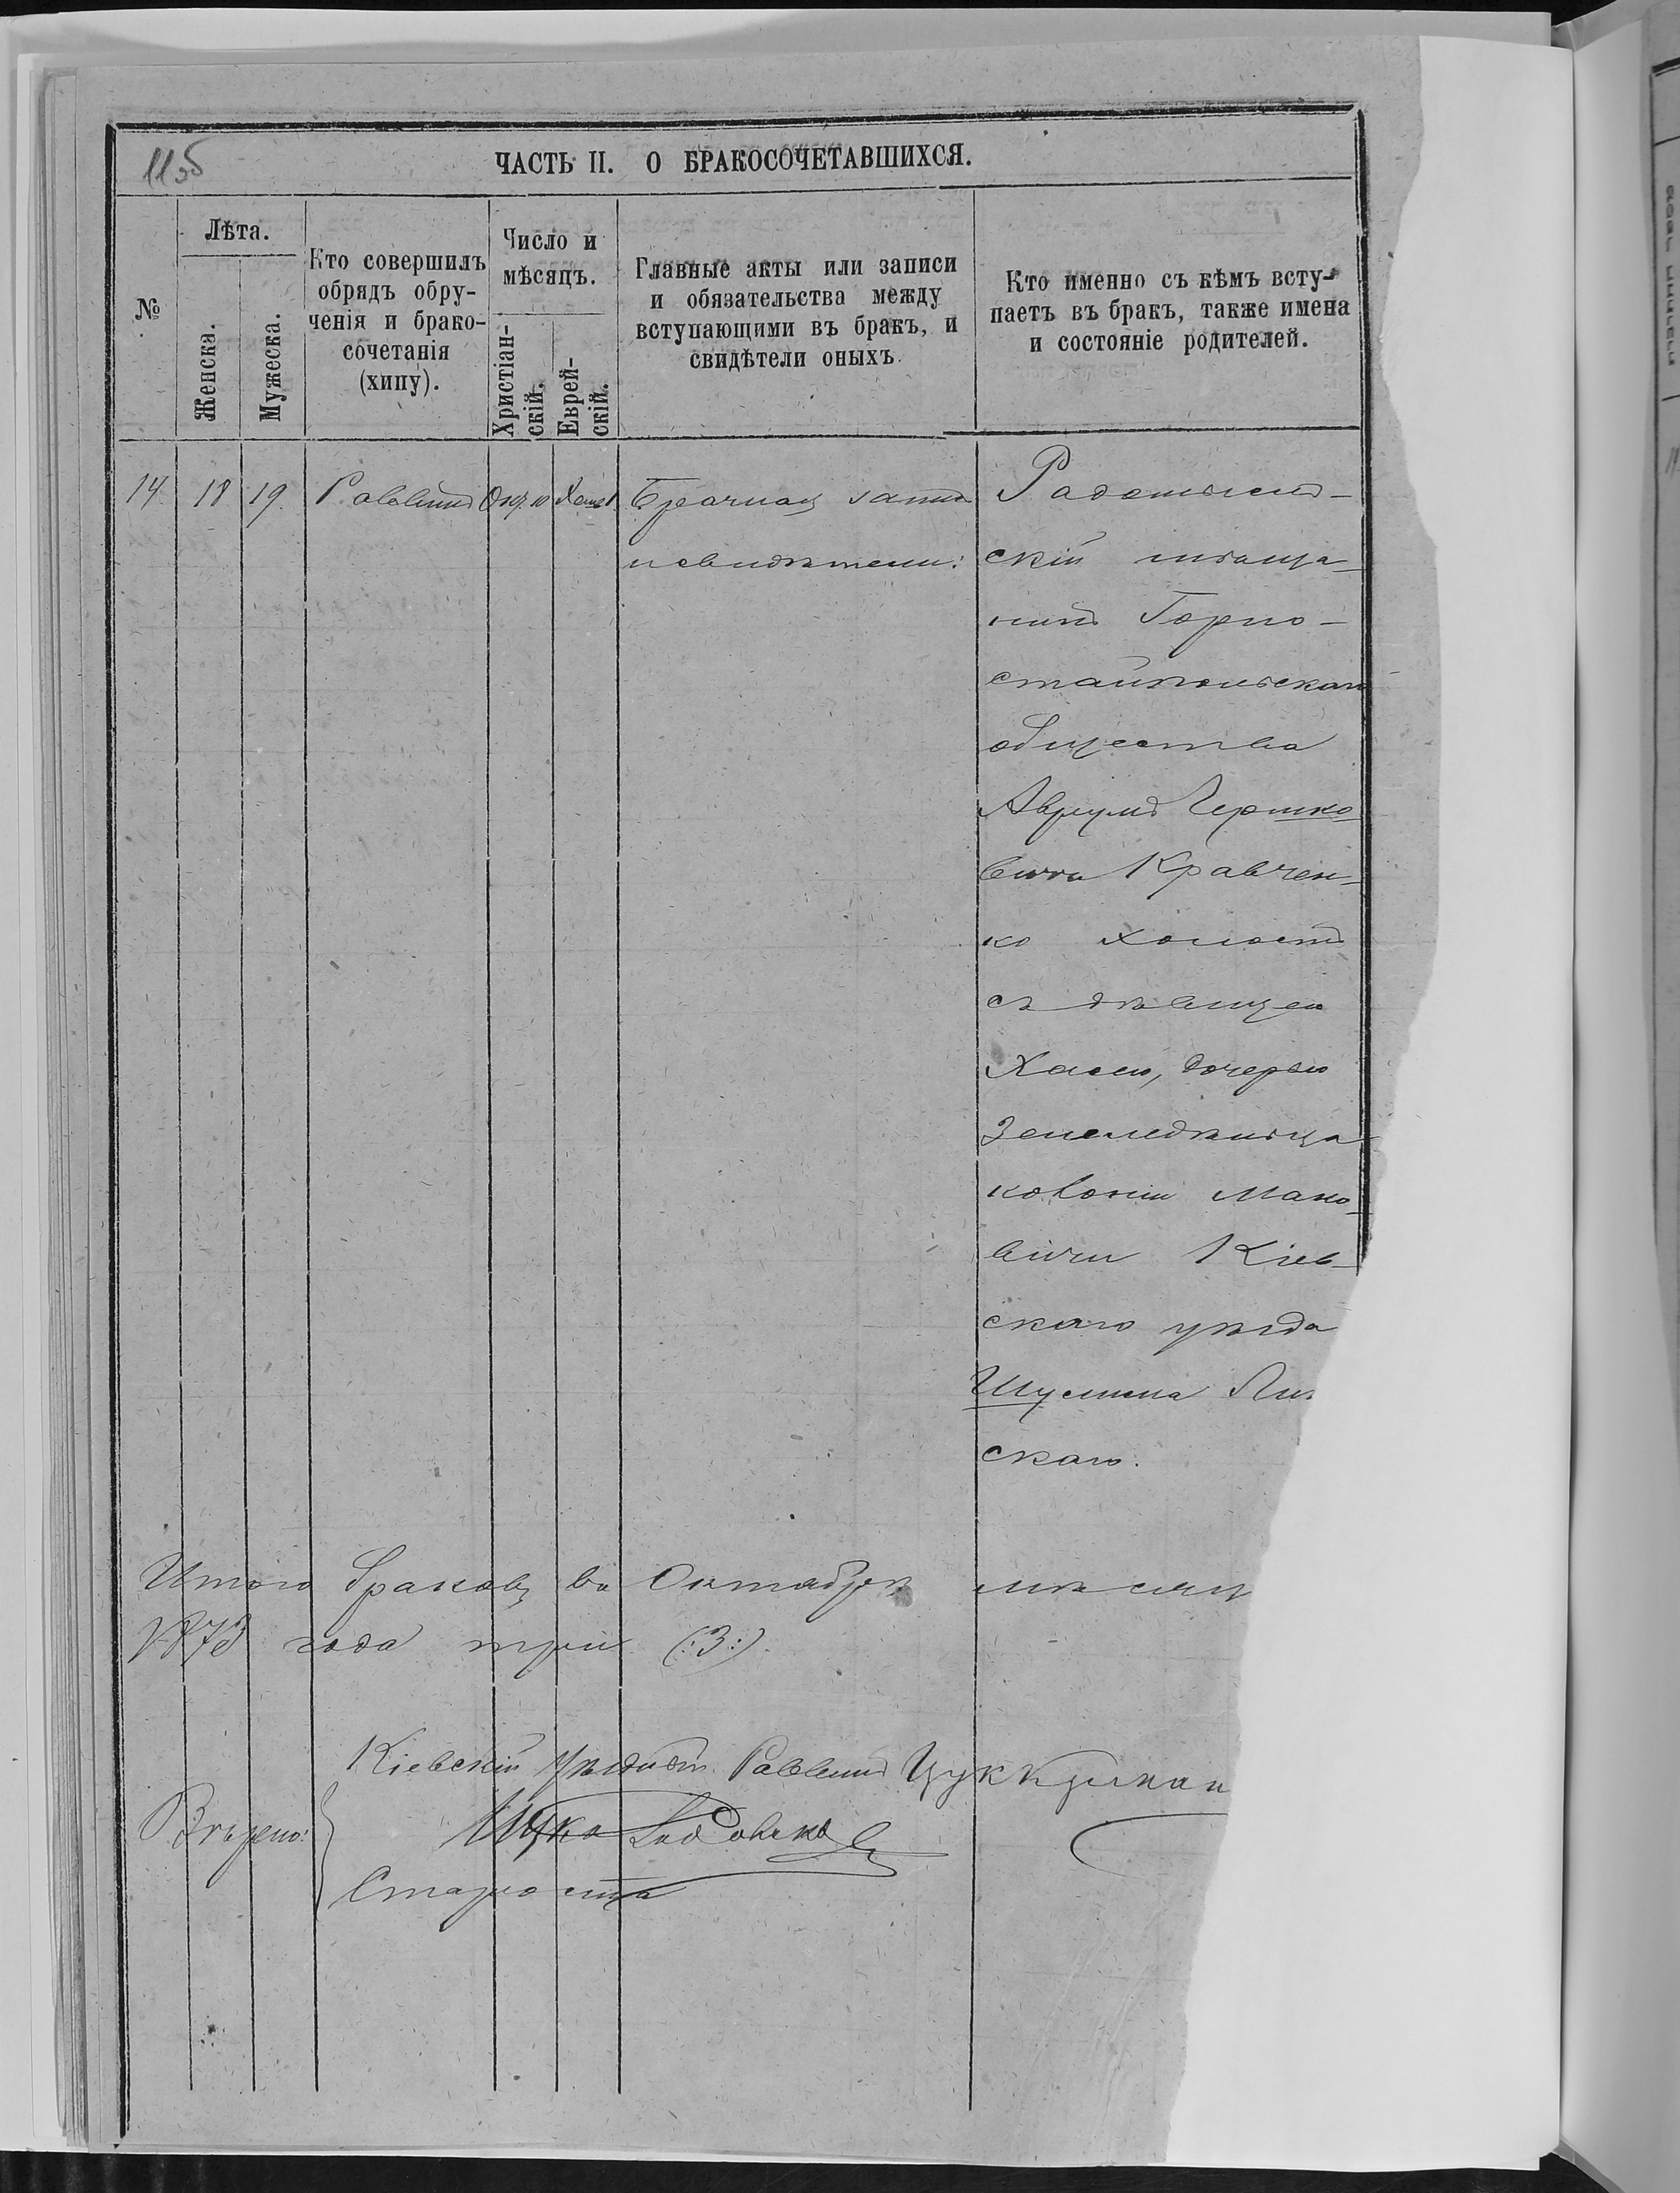 1135
ЧАСТЬ II. О БРАКОСОЧЕТАВШИХСЯ.
№
Лѣта.
Женска.
Мужеска.
Кто совершилъ
обрядъ обру-
ченія и брако-
сочетанія
(хипу).
Число и
мѣсяцъ.
Христіан-
скій.
Еврей-
скій.
Главные акты или записи
и обязательства между
вступающими въ бракъ, и
свидѣтели оныхъ
Кто именно съ кѣмъ всту-
паетъ въ бракъ, также имена
и состояніе родителей.
14 18 19. Раввинъ Окт. 10 Брачная запис
и свидѣтели:
Радомысль-
скій мѣща-
нинъ Горно-
стайпольскаго
общества
Аврумъ Гершко
вичъ Кравчен-
ко холостъ
съ дѣвицею
Хасею, дочерью
Земледѣльца
колоніи Мано
вичи Кіев-
скаго уѣзда
Шулима
скаго.
Итого браковъ въ Октябрѣ мѣсяц
1873 года три (:3:).
Кіевскій Уѣздный Раввинъ Цуккерман
Вѣрно:
Ицко
Староста